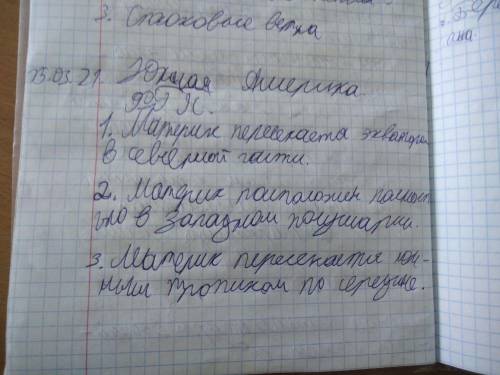 3. Стоковые ветра
15.03.21. Южная Америка
ФГП.
1. Материк пересекается экватором
в северной части.
2. Материк расположен полност
ью в Западном полушарии.
3. Материк пересекается юж-
ным тропиком по середине.